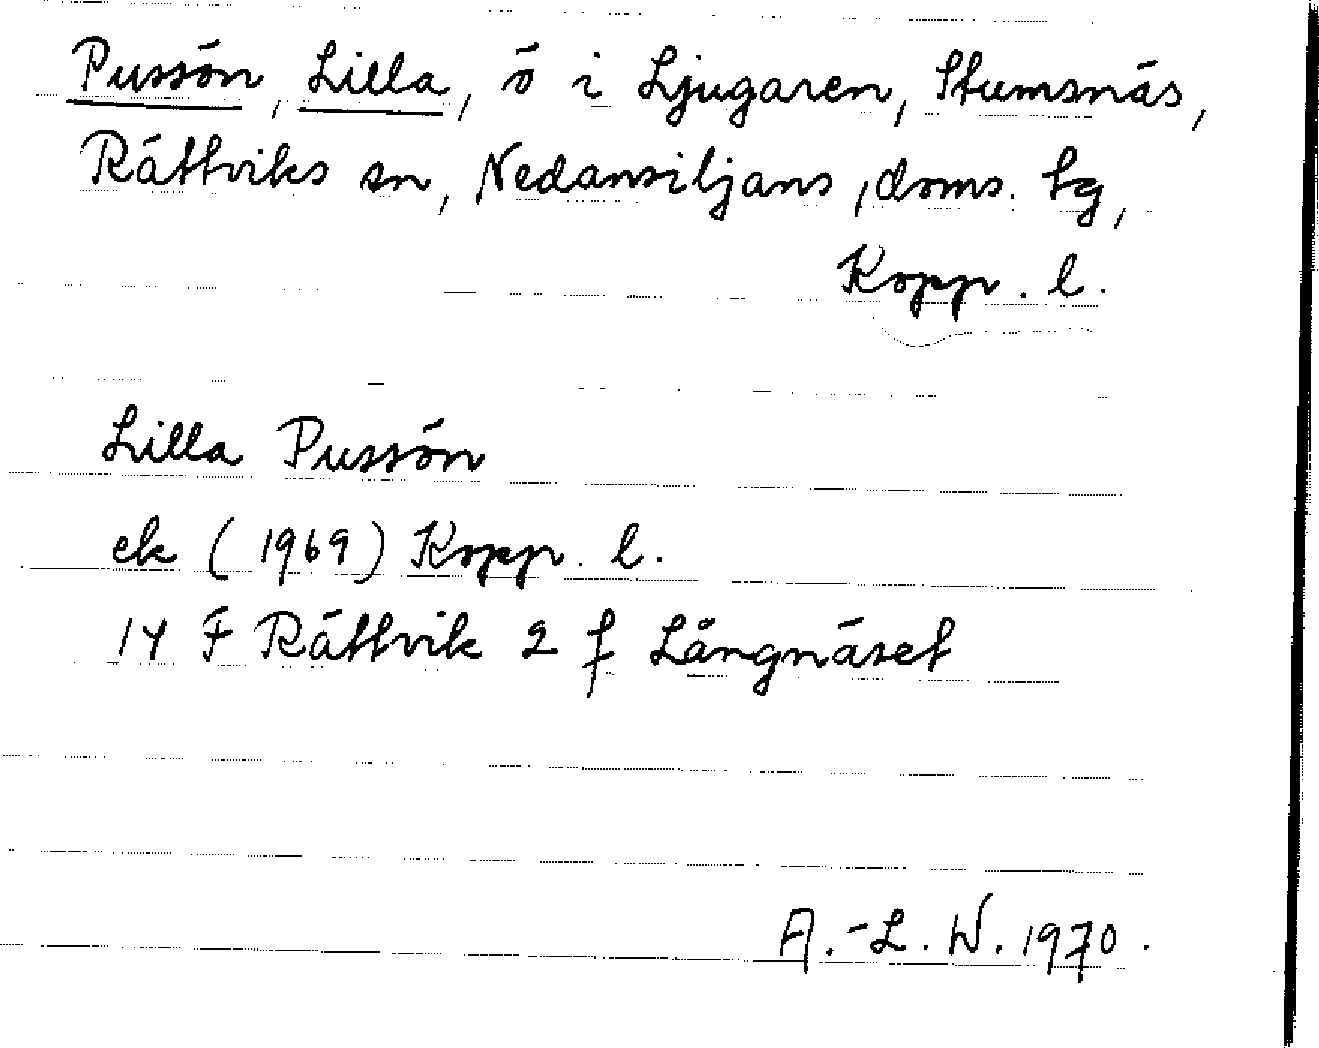 Pussön, Lilla, ö i Ljugaren, Stumsnäs,
Rättviks sn, Nedansiljans, doms. tg,
Kopp. l.
Lilla Pussön
ek (1969) Kopp. l.
14 F Rättvik 2 f Långnäset
A.-L. W. 1970.